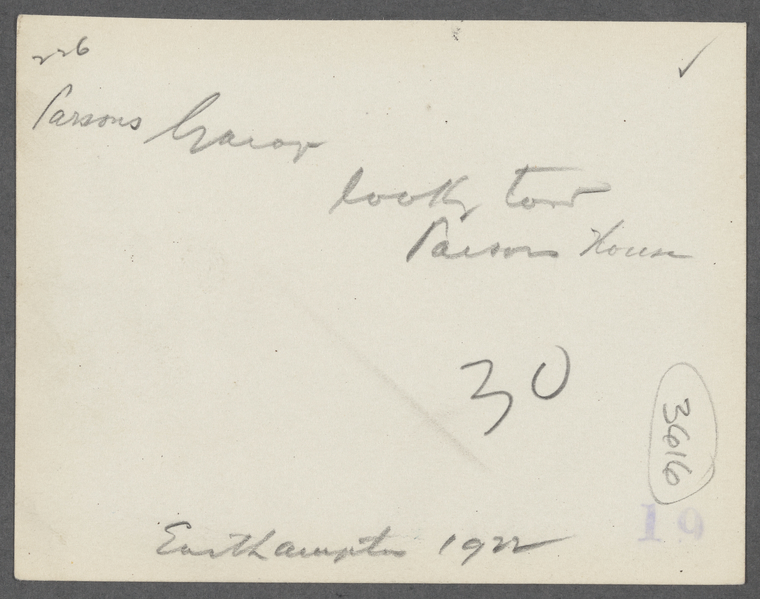 226
Parsons
looky tow
Parsons House
30
3616
19
Easthampton 1922